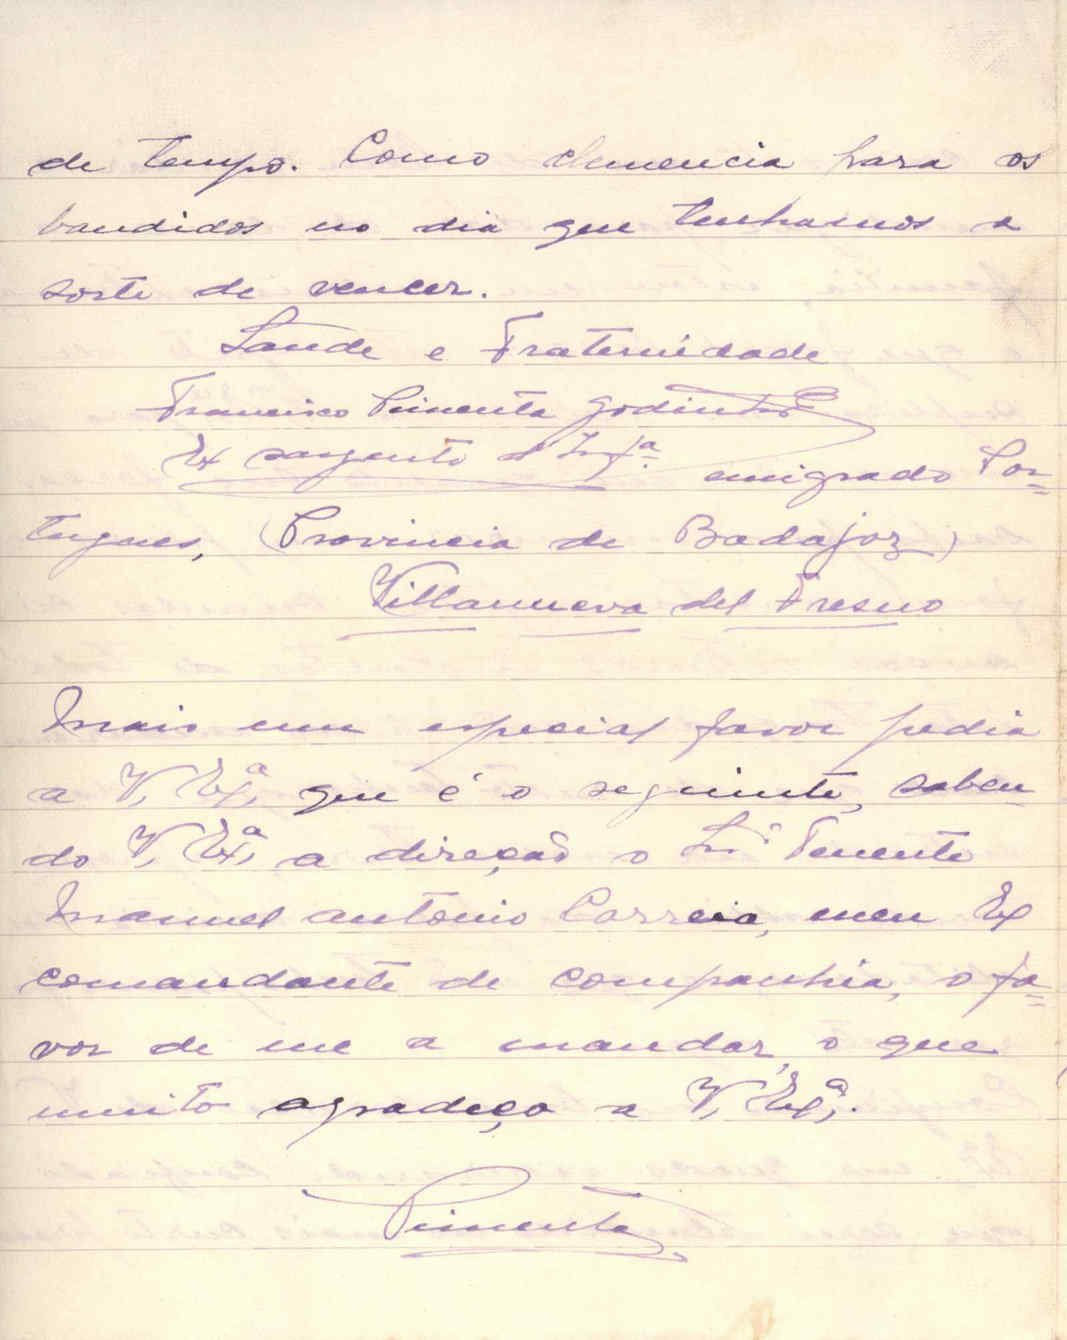 de tempo. Como clemencia para os
bandidos no dia que tenhamos a
sorte de vencer.
Saude e Fraternidade
Francisco Pimenta Godinho
Ex sargento d'Infª. emigrado Por=
tugues, (Provincia de Badajoz)
Villanueva del Fresno
Mais um especial favor pedia
a V. Exª, que é o seguinte, saben-
do V. Exª, a direção o Snr Tenente
Manuel antonio Correia, meu Ex
comandante de companhia, o fa=
vor de me a mandar, o que
muito agradeço a V. Exª.
Pimenta